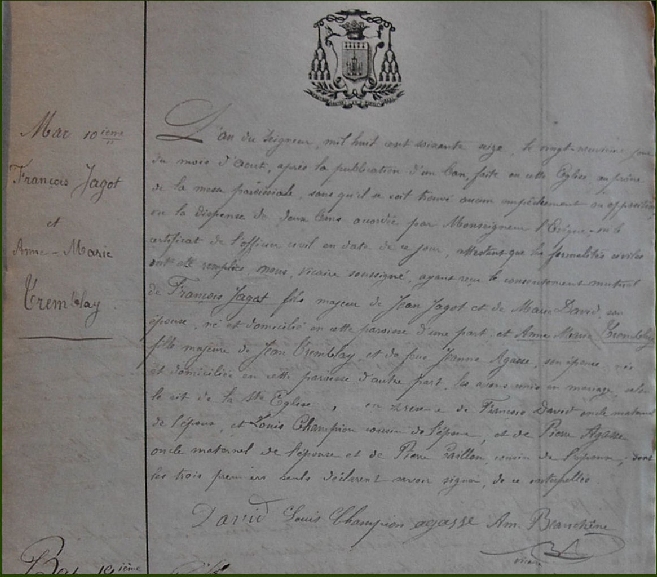 Mar 10ième
François Jagot
et
Anne-Marie
Tremblay
L'an du Seigneur, mil huit cent soixante seize, le vingt-neuvième jour
du mois d'Août, après la publication d'un ban, faite en cette Eglise au prône
de la messe paroissiale, sans qu'il se soit trouvé aucun empêchement ou opposition
vu la dispense de deux bans accordée par Monseigneur l'Evêque, vu le
certificat de l'officier civil en date de ce jour, attestant que les formalités civiles
ont été remplies, nous, vicaire soussigné, ayant reçu le consentement mutuel
de François Jagot fils majeur de Jean Jagot et de Marie David, son
épouse, né et domicilié en cette paroisse d'une part, et Anne Marie Tremblay
fille majeure de Jean Tremblay et de feue Jeanne Agasse, son épouse, née
et domiciliée en cette paroisse d'autre part, les avons unis en mariage selon
le rit de la Ste Eglise, en présence de François David oncle maternel
de l'époux, et Louis Champion cousin de l'époux, et de Pierre Agasse
oncle maternel de l'épouse et de Pierre cousin de l'épouse, dont
les trois premiers seuls déclarent savoir signer, de ce interpellés
David Louis Champion agasse Am. Branchême
vicaire
Bap 19ième